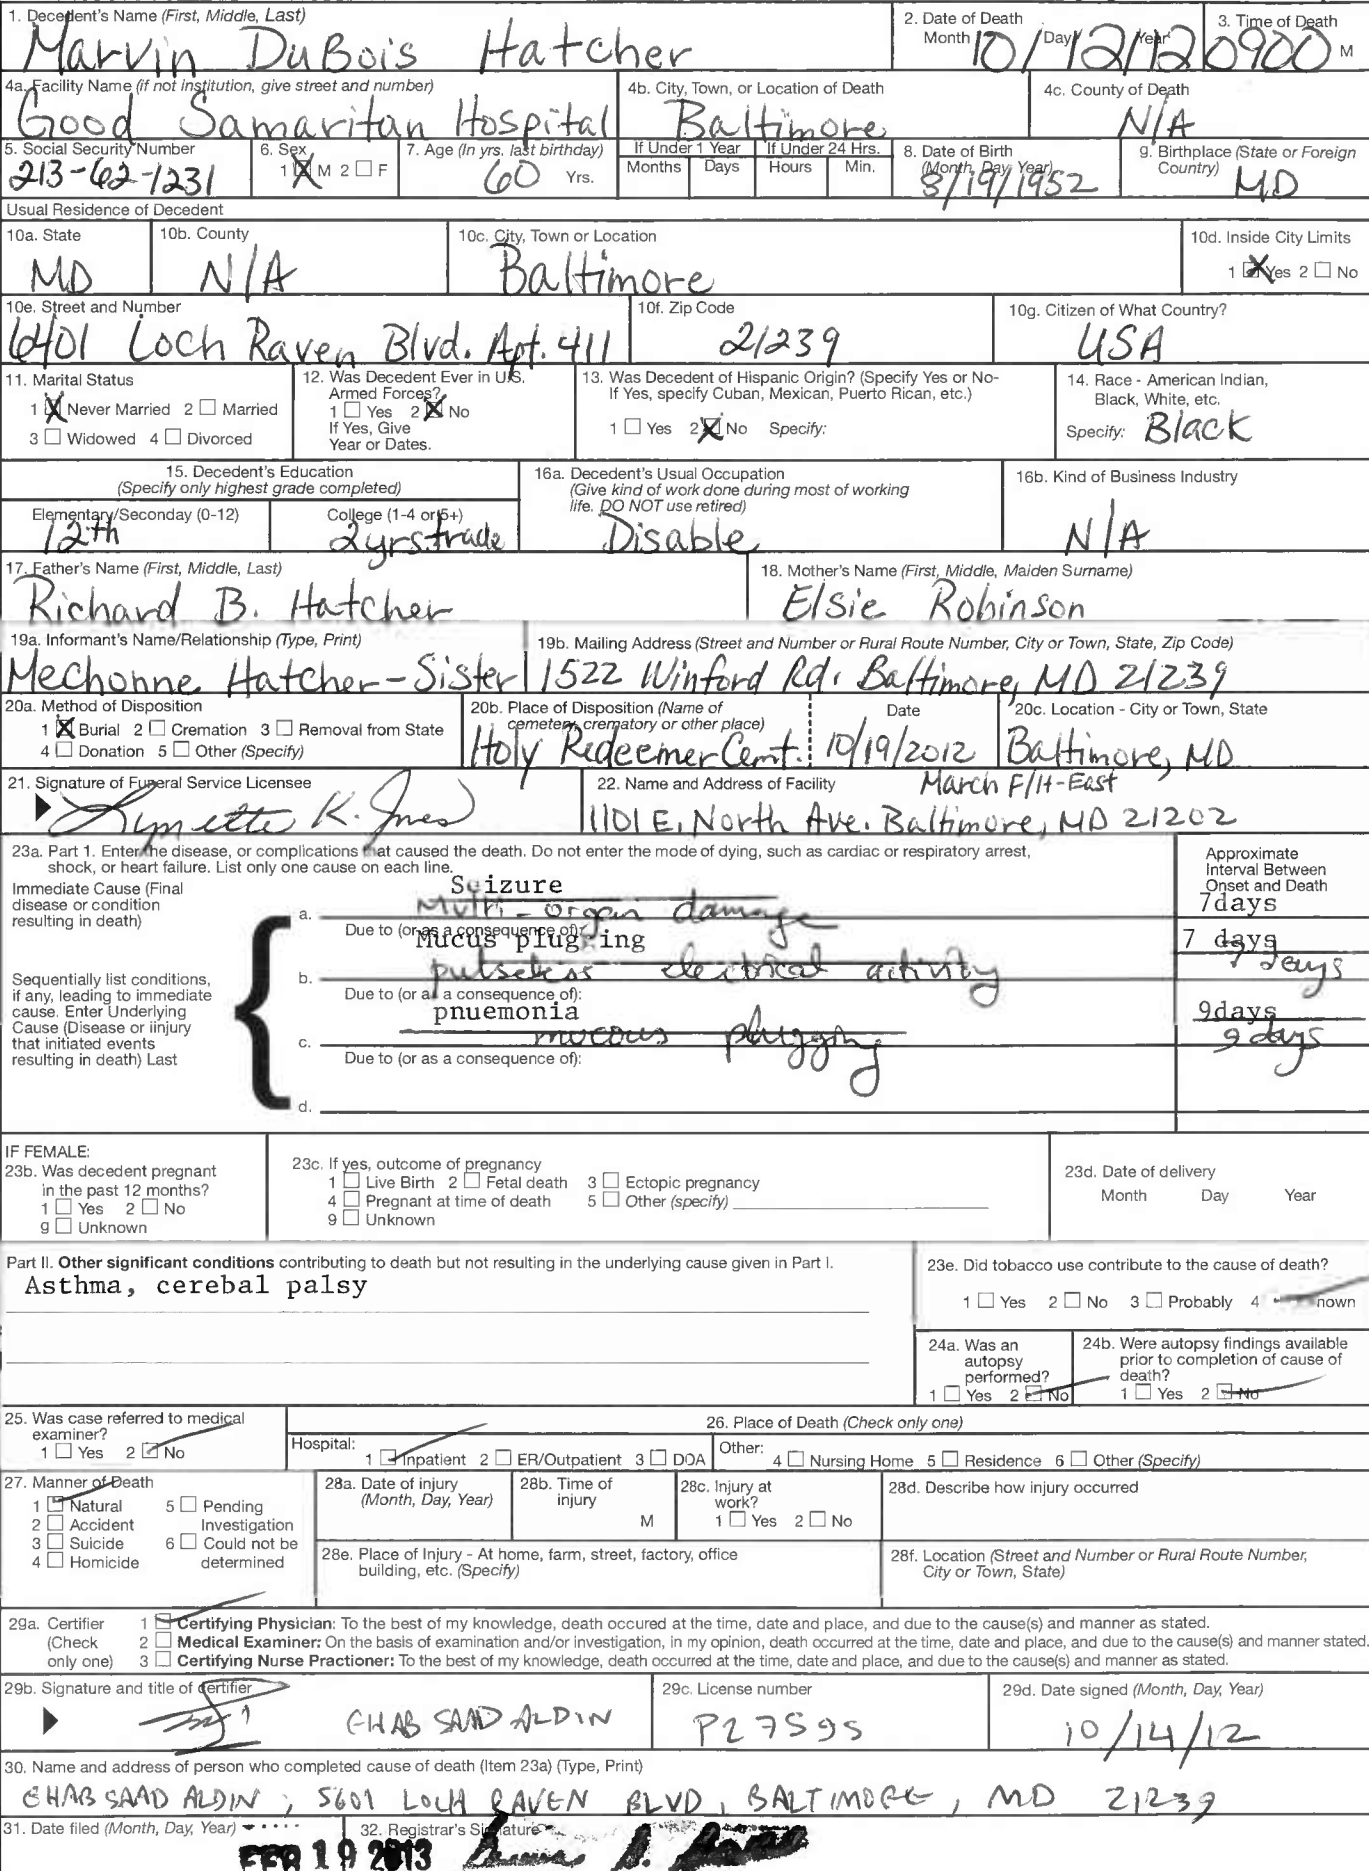 1. Decedent's Name (First, Middle, Last)
Marvin DuBois Hatcher
2. Date of Death
Month Day Year
10/12/12
3. Time of Death
0900 M
4a. Facility Name (if not institution, give street and number)
Good Samaritan Hospital
4b. City, Town, or Location of Death
Baltimore
4c. County of Death
N/A
5. Social Security Number
213-62-1231
6. Sex
1 X M 2 ☐ F
7. Age (In yrs. last birthday)
60 Yrs.
If Under 1 Year
Months Days
If Under 24 Hrs.
Hours Min.
8. Date of Birth
(Month, Day, Year)
8/19/1952
9. Birthplace (State or Foreign
Country)
MD
Usual Residence of Decedent
10a. State
MD
10b. County
N/A
10c. City, Town or Location
Baltimore
10d. Inside City Limits
1 X Yes 2 ☐ No
10e. Street and Number
6401 Loch Raven Blvd. Apt. 411
10f. Zip Code
21239
10g. Citizen of What Country?
USA
11. Marital Status
1 X Never Married 2 ☐ Married
3 ☐ Widowed 4 ☐ Divorced
12. Was Decedent Ever in U.S.
Armed Forces?
1 ☐ Yes 2 X No
If Yes, Give
Year or Dates.
13. Was Decedent of Hispanic Origin? (Specify Yes or No-
If Yes, specify Cuban, Mexican, Puerto Rican, etc.)
1 ☐ Yes 2 X No Specify:
14. Race - American Indian,
Black, White, etc.
Specify: Black
15. Decedent's Education
(Specify only highest grade completed)
Elementary/Seconday (0-12)
12th
College (1-4 or 5+)
2yrs.trade
16a. Decedent's Usual Occupation
(Give kind of work done during most of working
life. DO NOT use retired)
Disable
16b. Kind of Business Industry
N/A
17. Father's Name (First, Middle, Last)
Richard B. Hatcher
18. Mother's Name (First, Middle, Maiden Surname)
Elsie Robinson
19a. Informant's Name/Relationship (Type, Print)
Mechonne Hatcher-Sister
19b. Mailing Address (Street and Number or Rural Route Number, City or Town, State, Zip Code)
1522 Winford Rd. Baltimore, MD 21239
20a. Method of Disposition
1 X Burial 2 ☐ Cremation 3 ☐ Removal from State
4 ☐ Donation 5 ☐ Other (Specify)
20b. Place of Disposition (Name of
cemetery, crematory or other place)
Holy Redeemer Cemt.
Date
10/19/2012
20c. Location - City or Town, State
Baltimore, MD
21. Signature of Funeral Service Licensee
Lynette K. Jones
22. Name and Address of Facility
March F/H-East
1101 E. North Ave. Baltimore, MD 21202
23a. Part 1. Enter the disease, or complications that caused the death. Do not enter the mode of dying, such as cardiac or respiratory arrest,
shock, or heart failure. List only one cause on each line.
Approximate
Interval Between
Onset and Death
Immediate Cause (Final
disease or condition
resulting in death)
Seizure
a. Multi-organ damage
7days
Due to (or as a consequence of):
Mucus plugging
7 days
b. pulseless electrical activity
7 days
Sequentially list conditions,
if any, leading to immediate
cause. Enter Underlying
Cause (Disease or iinjury
that initiated events
resulting in death) Last
Due to (or as a consequence of):
pnuemonia
9days
c. mucous plugging
9 days
Due to (or as a consequence of):
d.
IF FEMALE:
23b. Was decedent pregnant
in the past 12 months?
1 ☐ Yes 2 ☐ No
9 ☐ Unknown
23c. If yes, outcome of pregnancy
1 ☐ Live Birth 2 ☐ Fetal death 3 ☐ Ectopic pregnancy
4 ☐ Pregnant at time of death 5 ☐ Other (specify)
9 ☐ Unknown
23d. Date of delivery
Month Day Year
Part II. Other significant conditions contributing to death but not resulting in the underlying cause given in Part I.
Asthma, cerebal palsy
23e. Did tobacco use contribute to the cause of death?
1 ☐ Yes 2 ☐ No 3 ☐ Probably 4 nown
24a. Was an
autopsy
performed?
1 ☐ Yes 2 ☑ No
24b. Were autopsy findings available
prior to completion of cause of
death?
1 ☐ Yes 2 ☑ No
25. Was case referred to medical
examiner?
1 ☐ Yes 2 ☑ No
26. Place of Death (Check only one)
Hospital:
1 ☑ Inpatient 2 ☐ ER/Outpatient 3 ☐ DOA
Other:
4 ☐ Nursing Home 5 ☐ Residence 6 ☐ Other (Specify)
27. Manner of Death
1 ☑ Natural 5 ☐ Pending
2 ☐ Accident Investigation
3 ☐ Suicide 6 ☐ Could not be
4 ☐ Homicide determined
28a. Date of injury
(Month, Day, Year)
28b. Time of
injury
M
28c. Injury at
work?
1 ☐ Yes 2 ☐ No
28d. Describe how injury occurred
28e. Place of Injury - At home, farm, street, factory, office
building, etc. (Specify)
28f. Location (Street and Number or Rural Route Number,
City or Town, State)
29a. Certifier
(Check
only one)
1 ☑ Certifying Physician: To the best of my knowledge, death occured at the time, date and place, and due to the cause(s) and manner as stated.
2 ☐ Medical Examiner: On the basis of examination and/or investigation, in my opinion, death occurred at the time, date and place, and due to the cause(s) and manner stated.
3 ☐ Certifying Nurse Practioner: To the best of my knowledge, death occurred at the time, date and place, and due to the cause(s) and manner as stated.
29b. Signature and title of certifier
EHAB SAAD ALDIN
29c. License number
P27595
29d. Date signed (Month, Day, Year)
10/14/12
30. Name and address of person who completed cause of death (Item 23a) (Type, Print)
EHAB SAAD ALDIN, 5601 LOCH RAVEN BLVD, BALTIMORE, MD 21239
31. Date filed (Month, Day, Year)
FEB 19 2013
32. Registrar's Signature